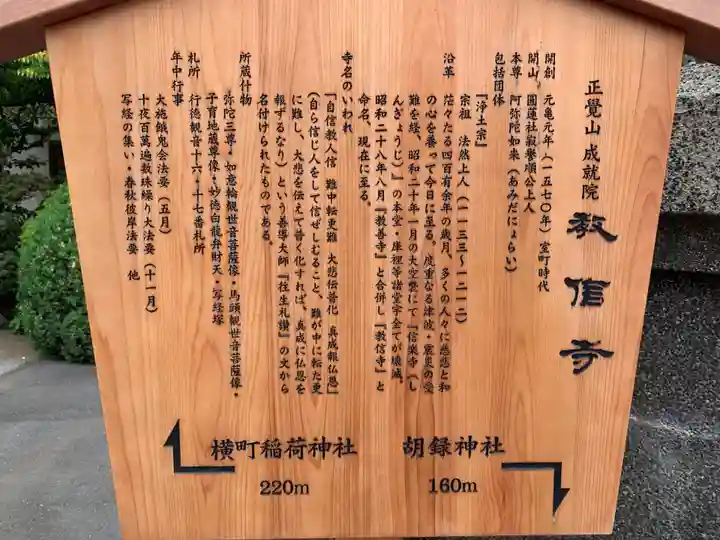 正覺山 成就院 教信寺
開創 元亀元年(一五七〇年)室町時代
開山 圓蓮社寂譽順公上人
本尊 阿弥陀如来(あみだにょらい)
包括団体
『浄土宗』
宗祖 法然上人(一一三三~一二一二)
沿革 茫々たる四百有余年の歳月、多くの人々に慈悲と和
の心を養って今日に至る。度重なる津波・震災の受
難を経、昭和二十年一月の大空襲にて『信楽寺(し
んぎょうじ)』の本堂・庫裡等諸堂宇全てが壊滅。
昭和二十八年八月『教善寺』と合併し『教信寺』と
命名、現在に至る。
寺名のいわれ
「自信教人信 難中転更難 大悲伝普化 真成報仏恩」
(自ら信じ人をして信ぜしむること、難が中に転た更
に難し、大悲を伝えて普く化すれば、真成に仏恩を
報ずるなり)という善導大師『往生礼讃』の文から
名付けられたものである。
所蔵什物
弥陀三尊・如意輪観世音菩薩像・馬頭観世音菩薩像・
子育地蔵尊像・妙徳白龍弁財天・写経塚
札所 行徳観音十六・十七番札所
年中行事
大施餓鬼会法要(五月)
十夜百萬遍数珠繰り大法要(十一月)
写経の集い・春秋彼岸法要 他
横町稲荷神社
220m
胡録神社
160m